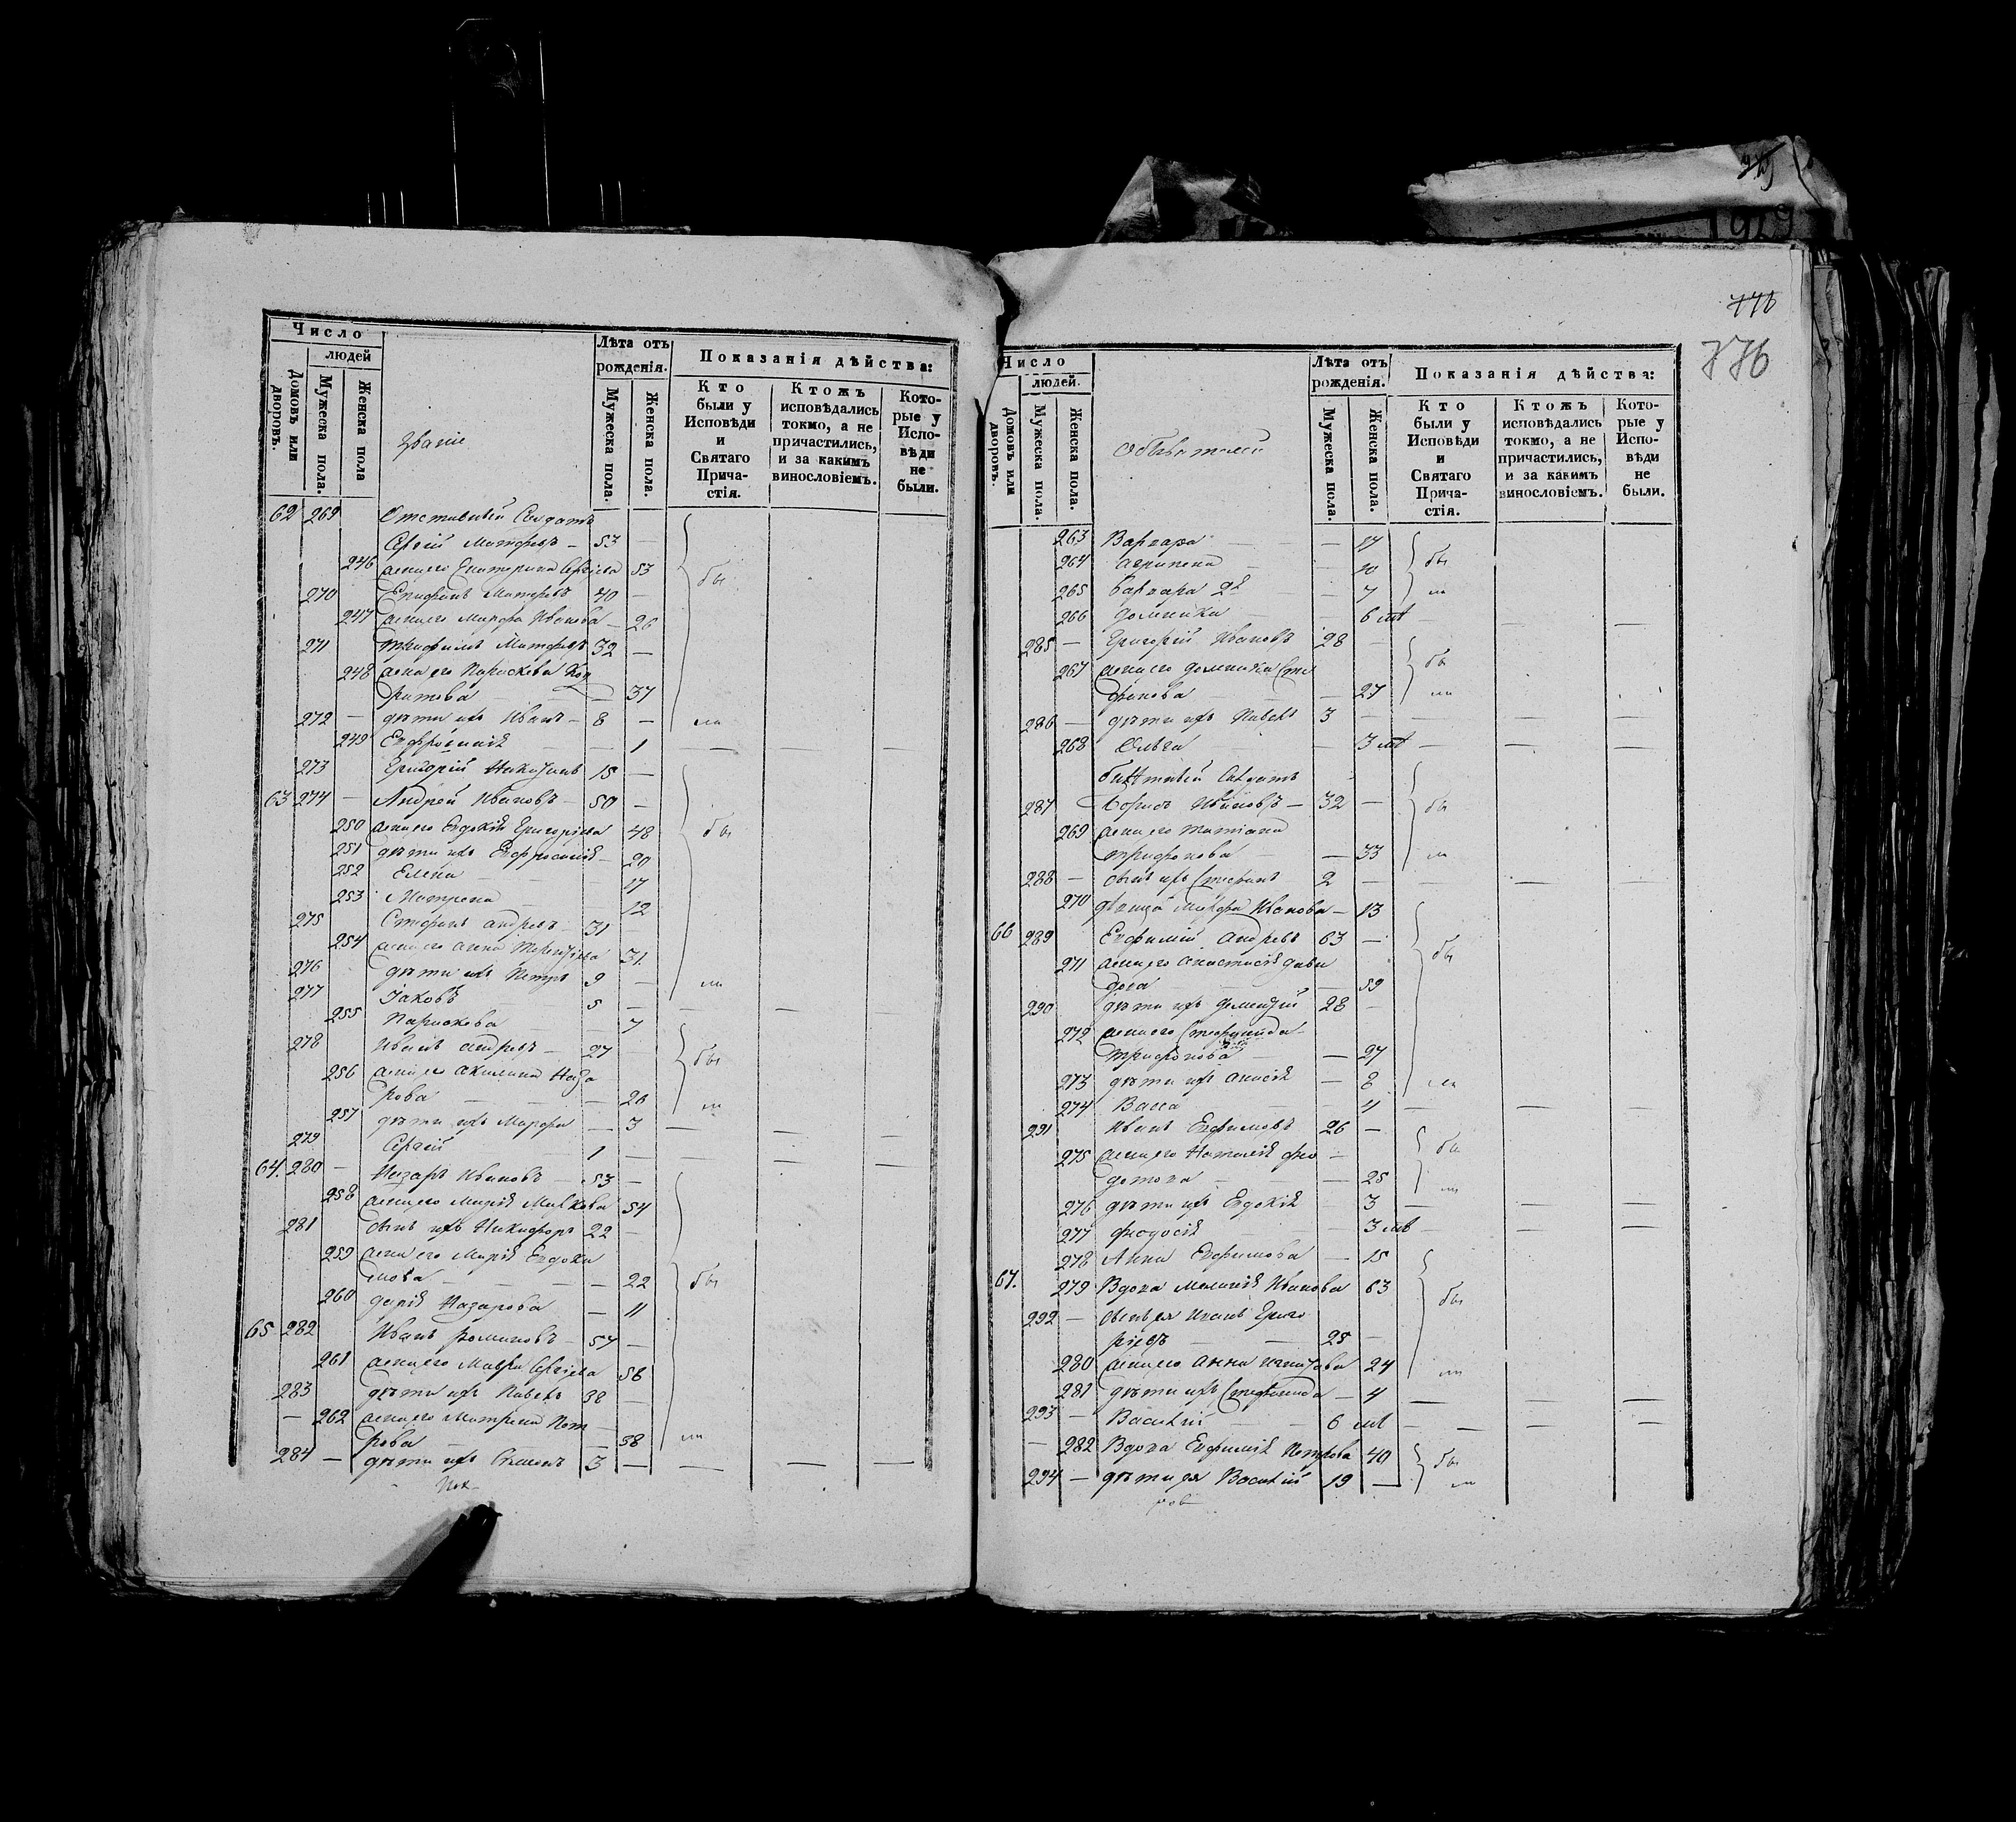 Число
людей
Домовъ или дворовъ.
Мужеска пола.
Женска пола
Званіе
Лѣта отъ рожденія.
Мужеска пола.
Женска пола.
Показанія дѣйства:
Кто были у Исповѣди и Святаго Прича-стія.
Ктожъ исповѣдались токмо, а не причастились, и за какимъ винословіемъ.
Кото-рые у Испо-вѣди не были.
62 269 Отставный Солдатъ
Сергій Матфевъ — 53 —
246 жена его Екатерина Сергіева 53
270 Епифанъ Матфевъ 40 —
247 жена его Марфа Иванова — 26
271 Трифонъ Матфевъ 32 —
248 жена его Параскева Кон
ратова — 37
272 — дѣти ихъ Иванъ — 8 —
249 Евфросинія — 1 — — —
273 Григорій Никитинъ 15 —
63 274 — Андрей Ивановъ — 50 —
250 жена его Евдокія Григоріева 48
251 дѣти ихъ Евфросинія — 20
252 Елена — 17
253 Матрена — 12
275 Стефанъ Андревъ — 31 —
254 жена его Анна 31.
276 дѣти ихъ Петръ 9 —
277 Іаковъ 5 — — —
255 Параскева — 7
278 Иванъ Андревъ — 27 —
256 жена его Акилина Наза
рова — — — 26
257 дѣти ихъ Марфа — 3 — — —
279 Сергій 1 — — — —
64. 280 — Назаръ Ивановъ — 53 —
258 жена его Марія Малкова 54
281 сынъ ихъ Никифоръ 22 —
259 жена его Марія Евдоки
мова — — — 22
260 Дарія Назарова — 11
65 282 Иванъ Фоминовъ — 57 —
261 жена его Мавра Сергіева 56
283 дѣти ихъ Павелъ 38 —
— 262 жена его Матрена Пет
рова — — 38
284 — дѣти ихъ Симеонъ 3 — — — —
Число
людей.
Домовъ или дворовъ.
Мужеска пола.
Женска пола.
Обывателей
Лѣта отъ рожденія.
Мужеска пола.
Женска пола.
Показанія дѣйства:
Кто были у Исповѣди и Святаго Прича-стія.
Ктожъ исповѣдались токмо, а не причастились, и за какимъ винословіемъ.
Кото-рые у Испо-вѣди не были.
776
776
263 Варвара — 17
264 Агрипена — 10
265 Варвара 2я — 7
266 Домника — 6 — — —
285 — Григорій Ивановъ 28 —
267 жена его Домника Сте
фанова — 27
286 — дѣти ихъ Павелъ 3 — — — —
268 Ольга — 3 — — —
билетный Солдатъ
287 Борисъ Ивановъ — 32 —
269 жена его Татіана
Трифонова — 33
288 — сынъ ихъ Стефанъ 2 — — — —
270 дѣвица Марфа Иванова — 13
66 289 Евфимій Андревъ 63 —
271 жена его Анастасія Дави
дова — 59
290 дѣти ихъ Дометій 28 —
272 жена его Стефанида
Трифонова — 27
273 дѣти ихъ Анисія — 8
274 Васса — 4 — — —
291 Иванъ Евфимовъ 26 —
275 жена его Наталія Фео
дотова — 25
276 дѣти ихъ Евдокія — 3 — — —
277 Феодосія — 3 — — —
278 Анна Евфимова — 15
67. 279 Вдова Меланія Иванова 63
292 — сынъ ея Иванъ Григо
ріевъ — 25 —
280 жена его Анна Игнатова 24
281 дѣти ихъ Стефанида — 4 — — —
293 — Василій 6 — — —
— 282 Вдова Евфимія Петрова 40
294 — дѣти ея Василій 19 —